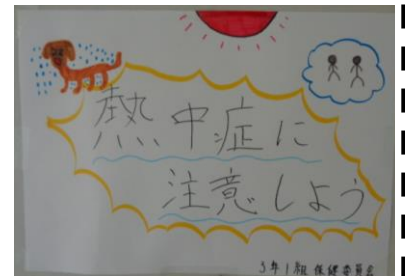 熱中症に
注意しよう
3年1組 保健委員会